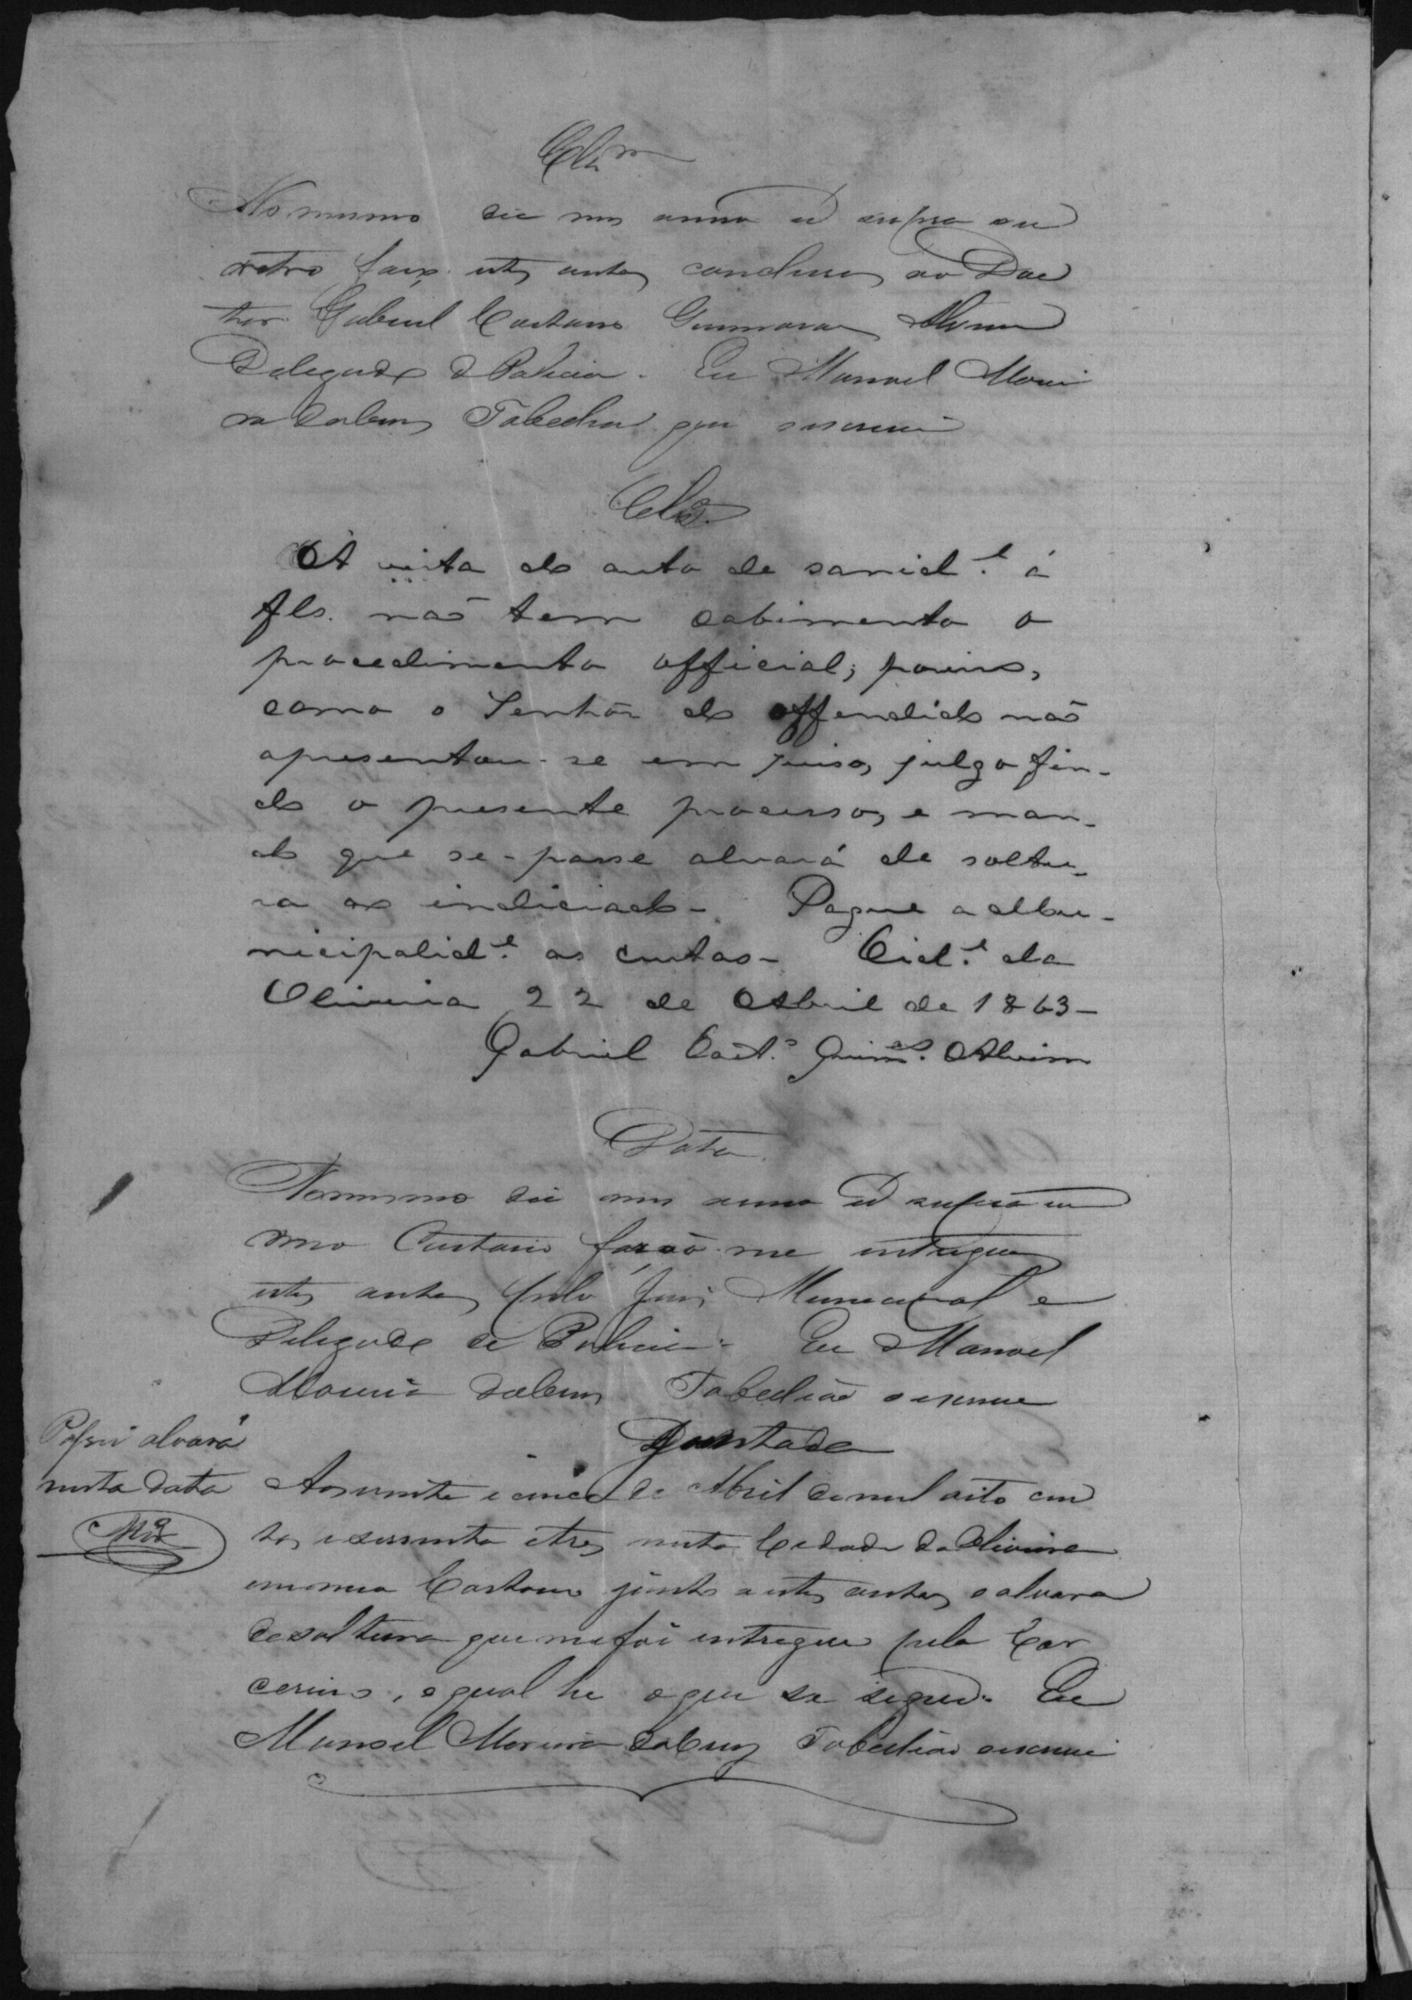 Clzm
No mesmo dia mes anno ut supra au
retro faço estes autos conclusos ao Dou
tor Gabriel Caetano Guimaraes Alvim
Delegado de Policia. Eu Manoel Morei
ra da Cruz Tabelliaõ que escrevi
Clzo.
A vista do auto de sanid.e á
fls. naõ tem cabimento o
procedimento official; porem,
como o Senhôr do offendido naõ
apresentou-se em juiso, julgo fin-
do o presente processo, e man-
do que se-passe alvará de soltu-
ra ao indiciado- Pague a Mu-
nicipalid.e as custas- Cid.e da
Oliveira 22 de Abril de 1863-
Gabriel Caet.o Guim.es Alvim
Data
No mesmo dia mes anno ut supra em
meo Cartorio foraõ-me entregues
estes autos pelo Juis Municipal e
Delegado de Policia. Eu Manoel
Moreira da Cruz Tabelliaõ escrevi
Passei alvará
nesta data
Juntada
Aos vinte e cinco de Abril de mil oito cen
tos e sessenta e tres nesta Cidade da Oliveira
em meu Cartorio junto a estes autos o alvara
de soltura que me foi entregue pelo Car
cereiro, o qual he o que se segue. Eu
Manoel Moreira da Cruz Tabelliaõ escrevi